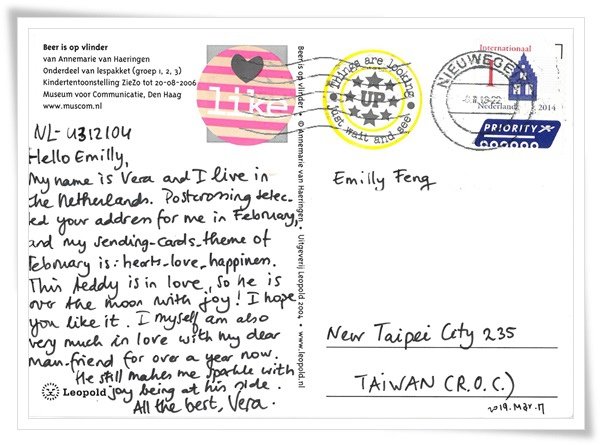 Beer is op vlinder
van Annemarie van Haeringen
Onderdeel van lespakket (groep 1, 2, 3)
Kindertentoonstelling ZieZo tot 20-08-2006
Museum voor Communicatie, Den Haag
www.muscom.nl
like
Things are looking
UP
just wait and see!
NIEUWEGEIN
Internationaal
1
Nederland 2014
PRIORITY
NL-4312104
Hello Emilly,
My name is Vera and I live in
the Netherlands. Postcrossing selec-
ted your address for me in February,
and my sending-cards-theme of
february is: hearts-love-happiness.
This teddy is in love, so he is
over the moon with joy! I hope
you like it. I myself am also
very much in love with my dear
man-friend for over a year now.
He still makes me sparkle with
joy being at his side.
All the best, Vera.
Leopold
Beer is op vlinder • © Annemarie van Haeringen • Uitgeverij Leopold 2004 • www.leopold.nl
Emilly Feng
New Taipei City 235
TAIWAN (R.O.C.)
2019.Mar.17